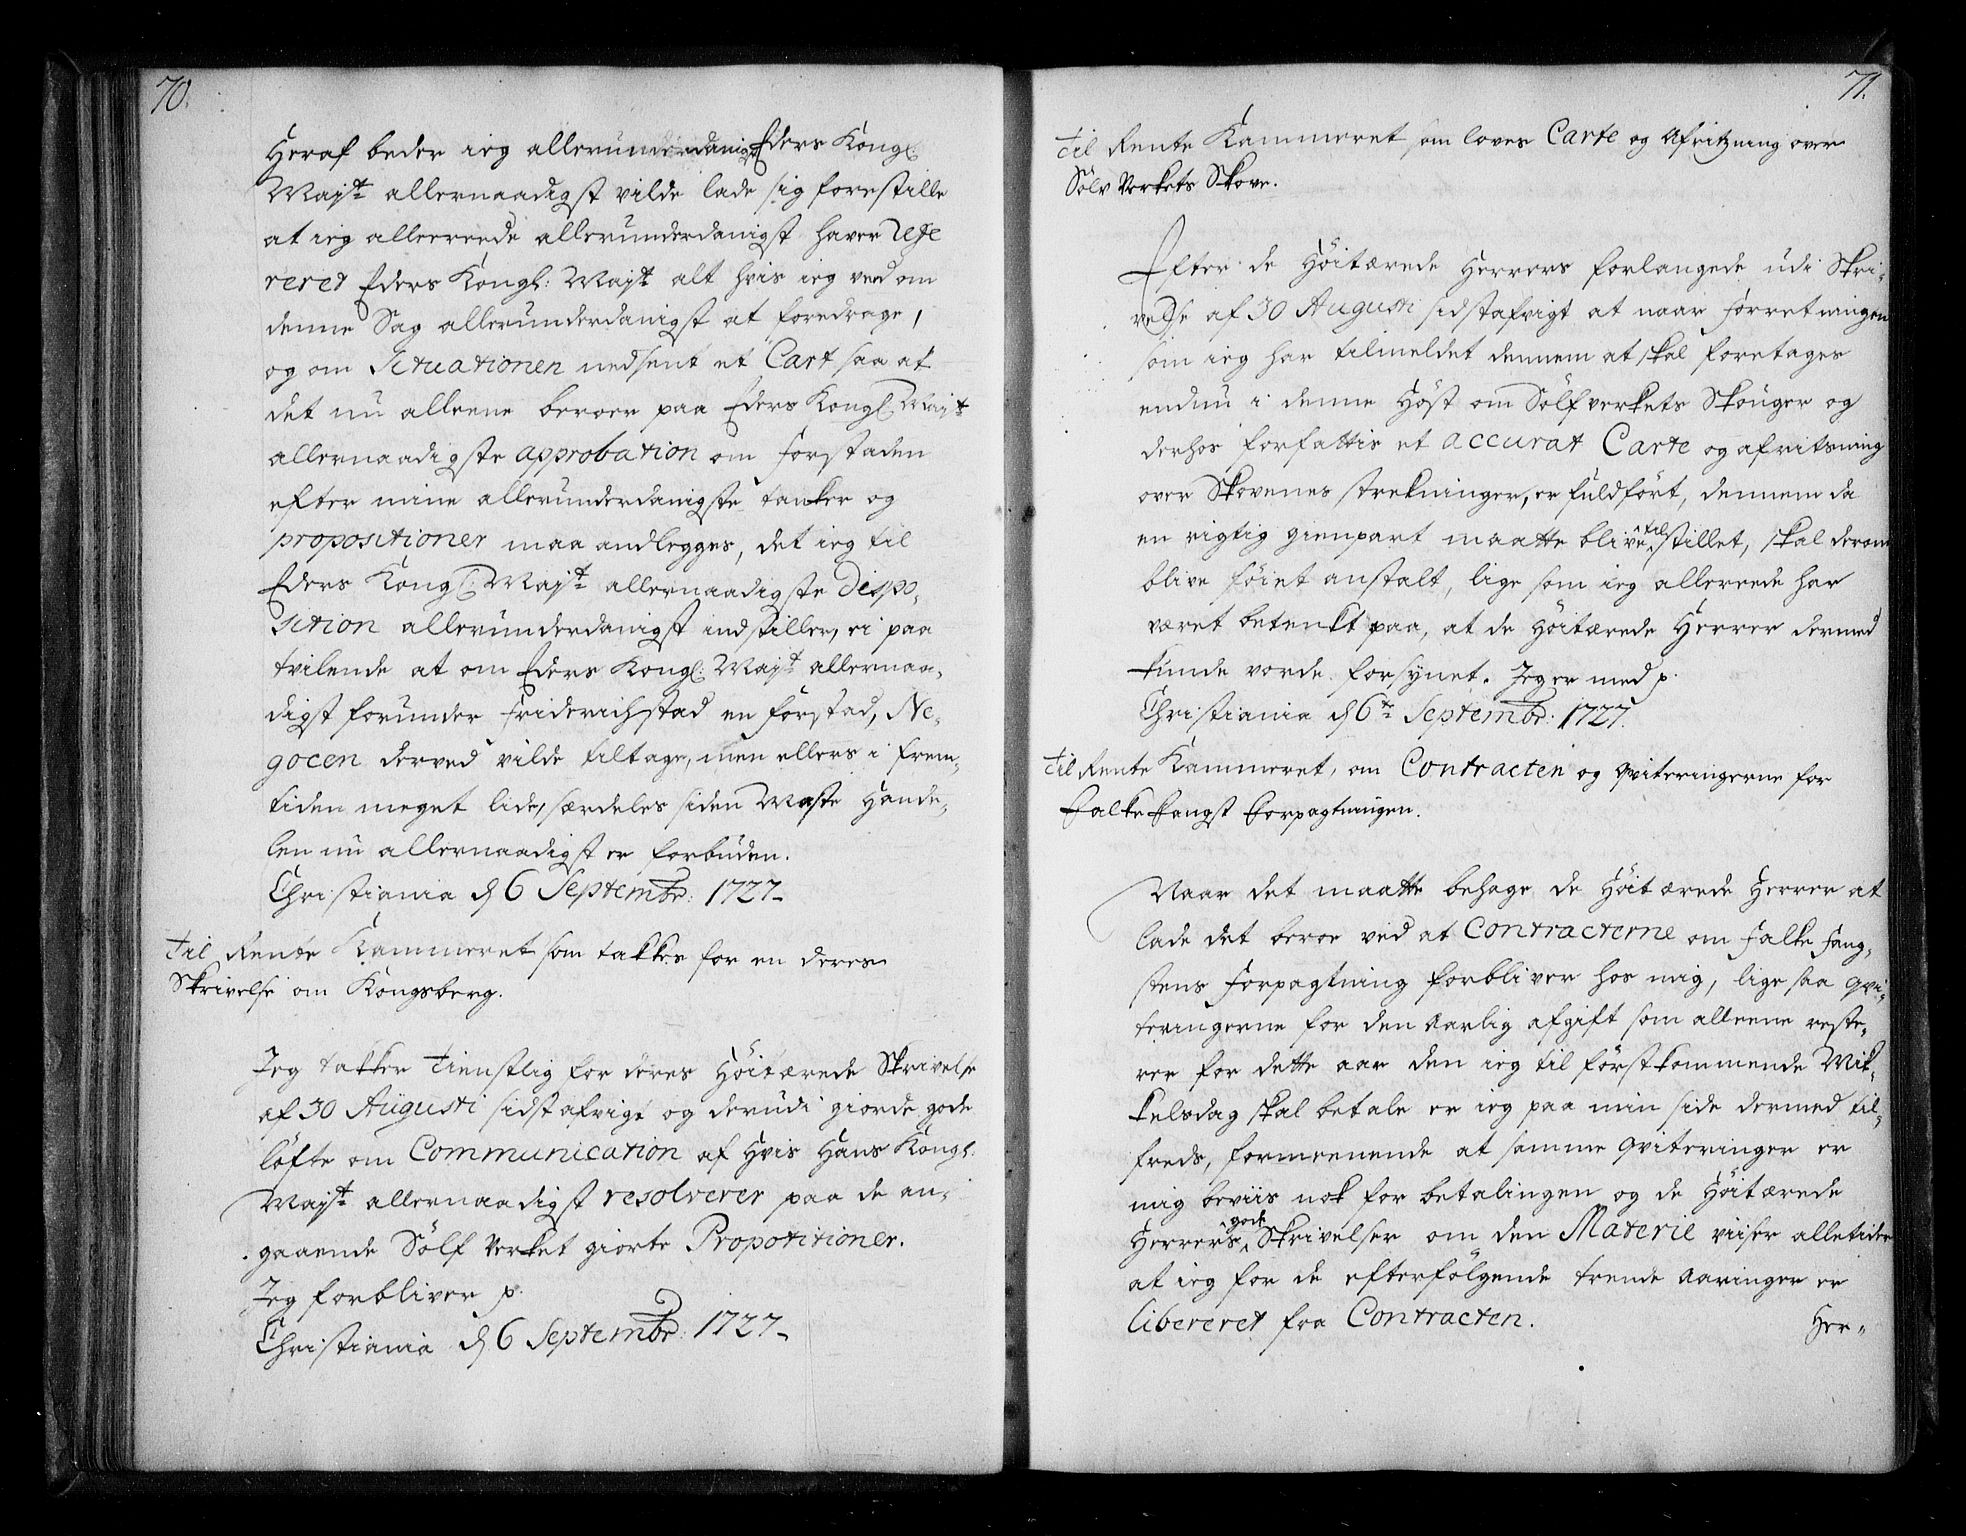 70.
Heraf beder ieg allerunderdanigst Eders Kongl:
Mayt. allernaadigst vilde lade sig forestille
at ieg allereede allerunderdanigst haver refe
reret Eders Kongl: Mayt. alt hvis ieg veed om
denne Sag allerunderdanigst at foredrage,
og om Situationen nedsent et Cart saa at
det nu alleene beroer paa Eders Kongl Mayt.
allernaadigste approbation om forstaden
efter mine allerunderdanigste tanker og
propositioner maa andlegges, det ieg til
Eders Kongl: Mayt. allernaadigste dispo-
sition allerunderdanigst indstiller, ei paa
tvilende at om Eders Kongl: Mayt. allernaa-
digst forunder Friderichstad en forstad, Ne-
gocen derved vilde tiltage, men ellers i frem-
tiden meget lide, særdeles siden Maste Hande-
len nu allernaadigst er forbuden.
Christiania d 6 Septembr: 1727-
Til Rente Kammeret som takkes for en deres
Skrivelse om Kongsberg.
Jeg takker tienstlig for deres Höitærede Skrivelse
af 30 Augusti sidst afvigt og derudi giorde gode
löfte om Communication af hvis Hans Kongl.
Mayt. allernaadigst resolverer paa de an-
gaaende Sölf Verket giorte Propositioner.
Jeg forbliver p.
Christiania d. 6 Septembr: 1727-
71.
Til Rente Kammeret som loves Carte og Afritzning over
Sölv Verkets Skove.
Efter de Höitærede Herrers forlangede udi Skri-
velse af 30 Augusti sidstafvigt at naar forretningen
som ieg har tilmeldet dennem at skal foretages
endnu i denne Höst om Sölfverkets Skouger og
derhos forfattis et accurat Carte og afritsning
over Skovenes strekninger, er fuldfört, dennem da
en rigtig gienpart maatte blive tilstillet, skal derom
blive föiet anstalt, lige som ieg allereede har
været betenkt paa, at de Höitærede Herrer dermed
kunde vorde forsynet. Jeg er med p.
Christiania d 6te Septembr: 1727.
Til Rente Kammeret, om Contracten og qviteringerne for
Falke Fangst Forpagtningen.
Naar det maatte behage de Höitærede Herrer at
lade det beroe ved at Contracterne om Falke Fang-
stens Forpagtning forbliver hos mig, lige saa qvi-
teringerne for den Aarlig afgift som alleene reste-
rer for dette aar den ieg til förstkommende Mik-
kelsdag skal betale er ieg paa min side dermed til-
freds, formeenende at samme qviteringer er
mig beviis nok for betalingen og de Höitærede
Herrers gode Skrivelser om den Materie viiser alletider
at ieg for de efterfölgende trende Aaringer er
libereret fra Contracten.
Her-